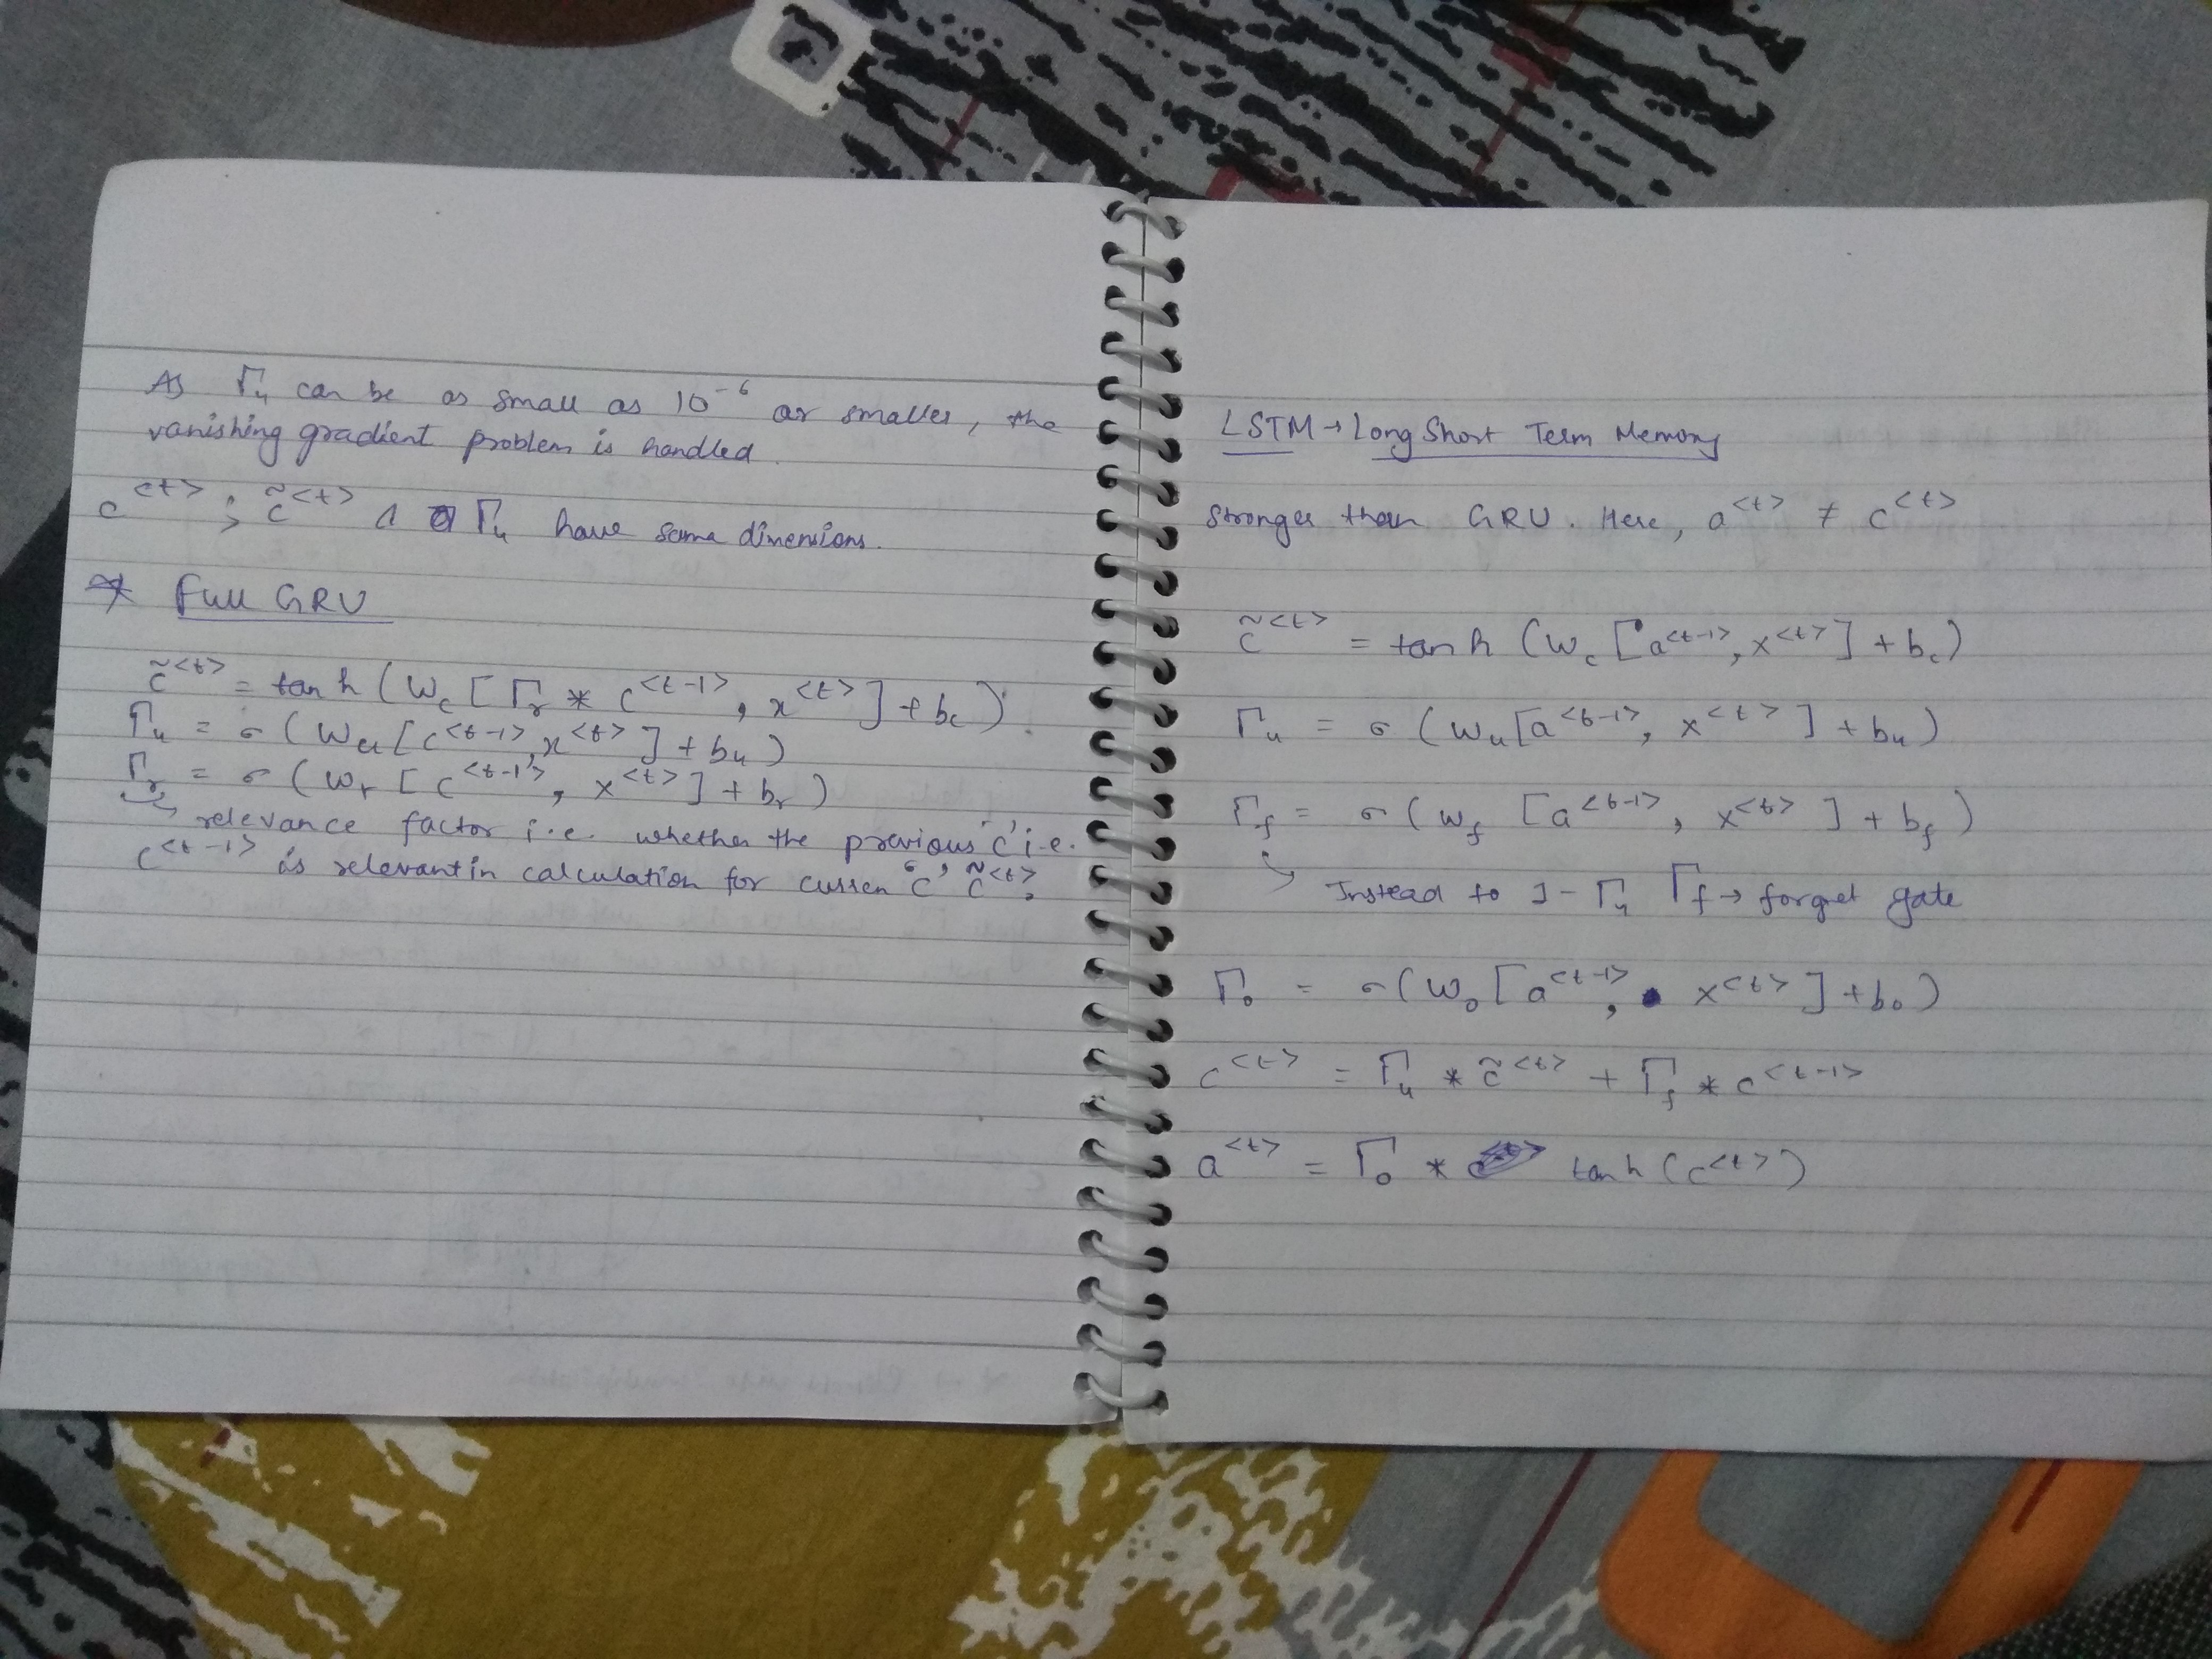 As Γu can be as small as 10^-6 or smaller, the
vanishing gradient problem is handled.
c^<t>, c̃^<t> & Γu have same dimensions.
* Full GRU
c̃^<t> = tanh (Wc [Γr * c^<t-1>, x^<t>] + bc)
Γu = σ (Wu [c^<t-1>, x^<t>] + bu)
Γr = σ (Wr [c^<t-1>, x^<t>] + br)
→ relevance factor i.e. whether the previous 'c' i.e.
c^<t-1> is relevant in calculation for curren 'c' c̃^<t>.
LSTM → Long Short Term Memory
Stronger than GRU. Here, a^<t> ≠ c^<t>
c̃^<t> = tanh (Wc [a^<t-1>, x^<t>] + bc)
Γu = σ (Wu [a^<t-1>, x^<t>] + bu)
Γf = σ (Wf [a^<t-1>, x^<t>] + bf)
→ Instead to 1 - Γu Γf → forget gate
Γo = σ (Wo [a^<t-1>, x^<t>] + bo)
c^<t> = Γu * c̃^<t> + Γf * c^<t-1>
a^<t> = Γo * tanh (c^<t>)